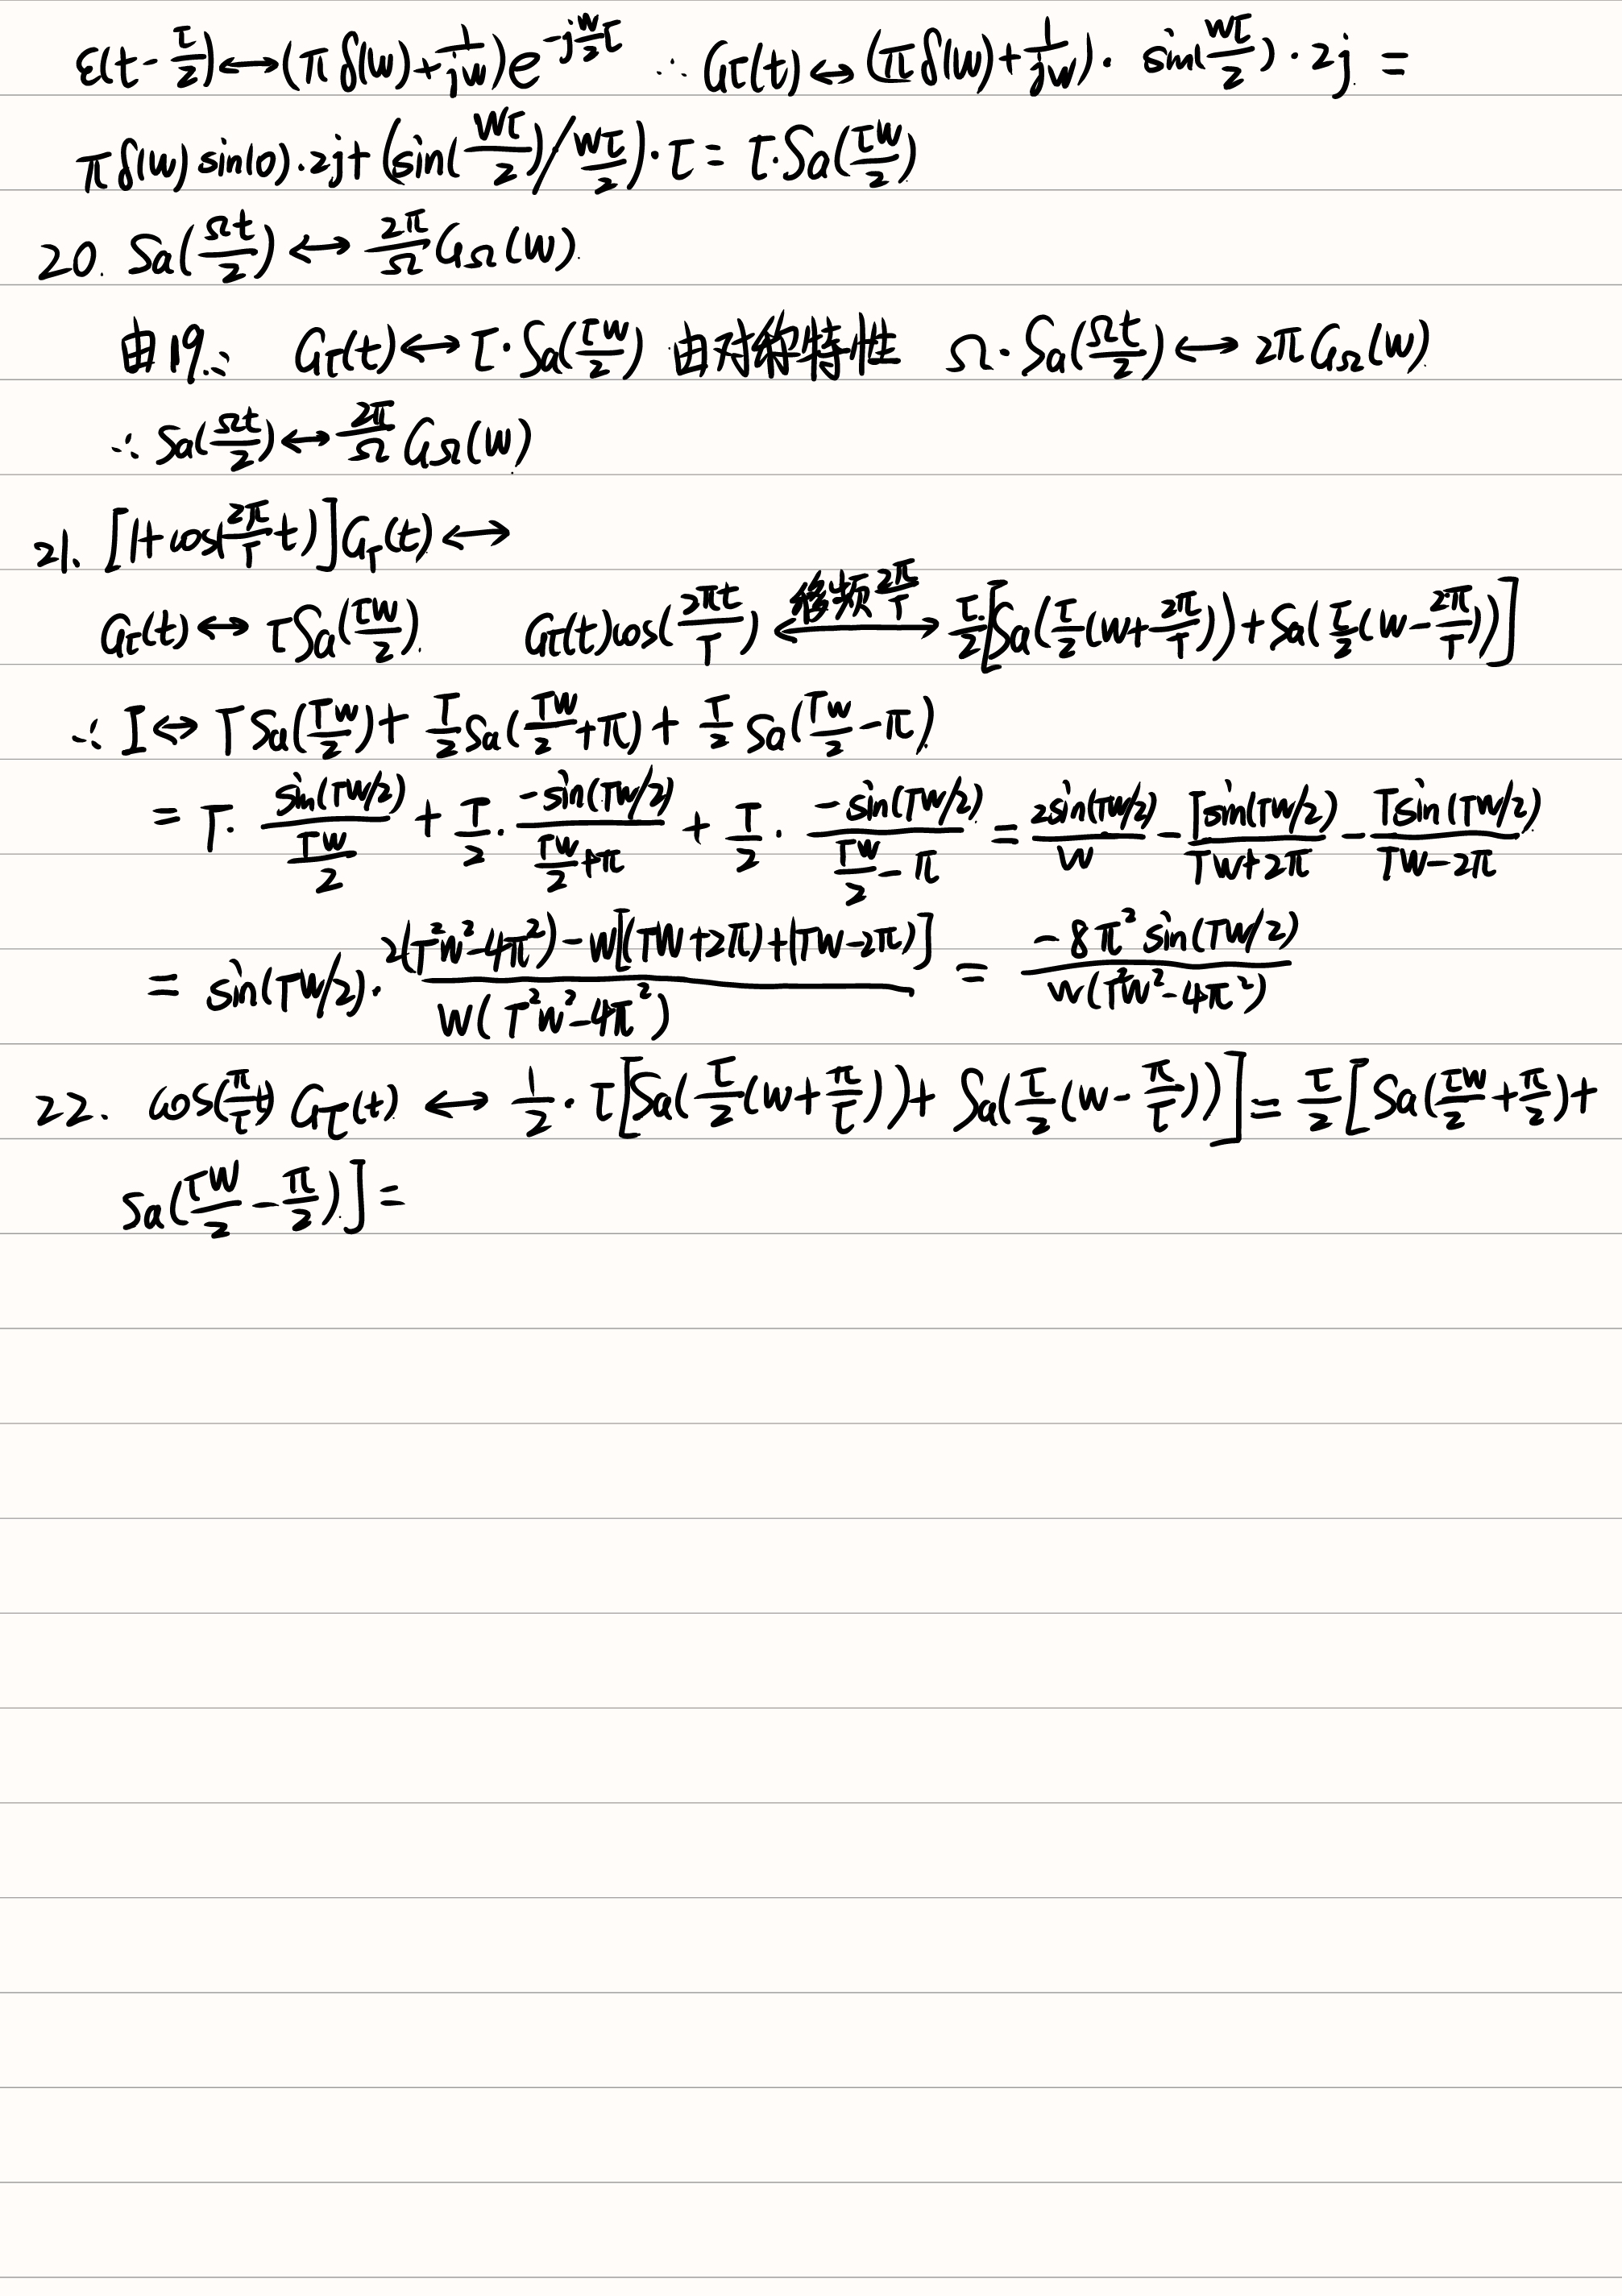 ε(t-τ/2)↔(πδ(w)+1/jw)e^{-j(w/2)τ} ∴ Gτ(t)↔(πδ(w)+1/jw)·sin(wτ/2)·2j =
πδ(w)sin(0)·2j+(sin(wτ/2)/(wτ/2))·τ=τ·Sa(τw/2)
20. Sa(Ωt/2)↔(2π/Ω)G_Ω(w)
由19.∴ Gτ(t)↔τ·Sa(τw/2) 由对称特性 Ω·Sa(Ωt/2)↔2πG_Ω(w)
∴ Sa(Ωt/2)↔(2π/Ω)G_Ω(w)
21. [1+cos((2π/T)t)]G_T(t)↔
Gτ(t)↔τSa(τw/2) Gτ(t)cos(2πt/T) ↔ 移频2π/T (τ/2)[Sa((τ/2)(w+2π/T))+Sa((τ/2)(w-2π/T))]
∴ I↔TSa(Tw/2)+(T/2)Sa(Tw/2+π)+(T/2)Sa(Tw/2-π)
=T·sin(Tw/2)/(Tw/2)+(T/2)·(-sin(Tw/2))/(Tw/2+π)+(T/2)·(-sin(Tw/2))/(Tw/2-π)=2sin(Tw/2)/w-Tsin(Tw/2)/(Tw+2π)-Tsin(Tw/2)/(Tw-2π)
=sin(Tw/2)·(2(T²w²-4π²)-w[(Tw+2π)+(Tw-2π)])/(w(T²w²-4π²))=-8π²sin(Tw/2)/(w(T²w²-4π²))
22. cos((π/τ)t)Gτ(t)↔(1/2)·τ[Sa((τ/2)(w+π/τ))+Sa((τ/2)(w-π/τ))]=(τ/2)[Sa(τw/2+π/2)+
Sa(τw/2-π/2)]=